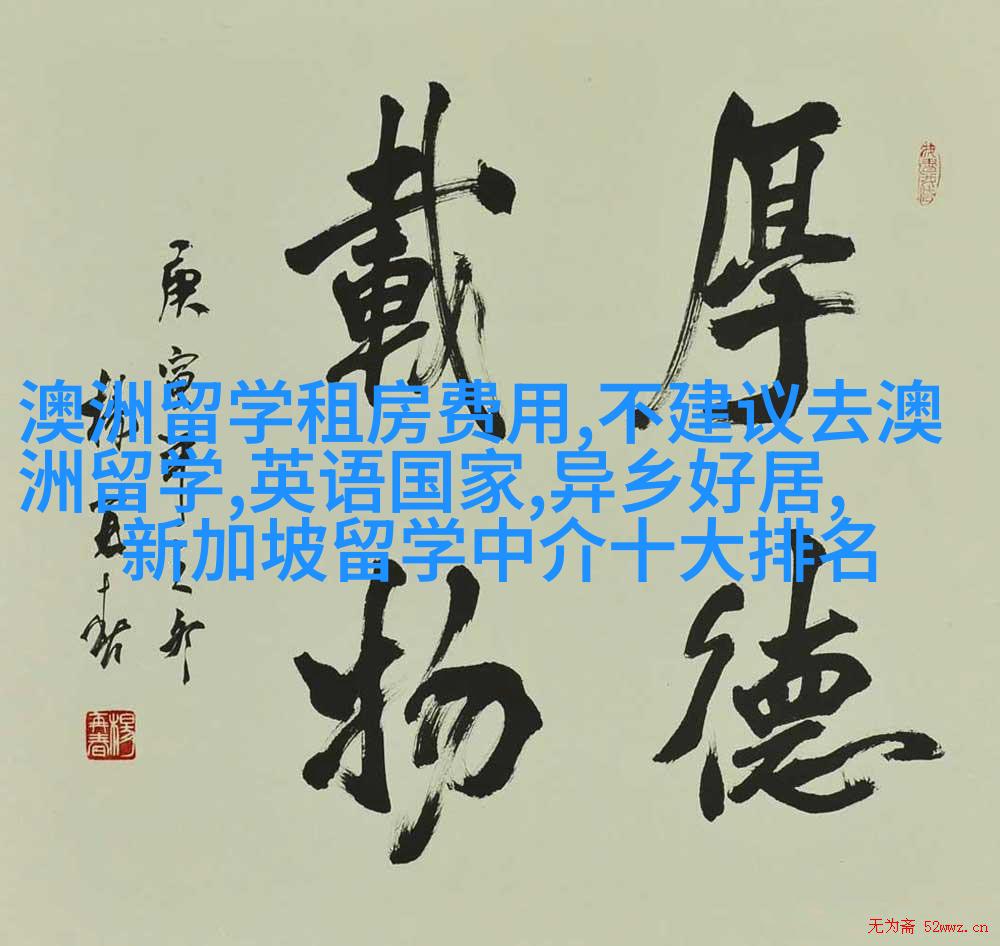 厚德
載物
庚寅年
楊再春
澳洲留学租房费用,不建议去澳
洲留学,英语国家,异乡好居,
新加坡留学中介十大排名
楊再春
无为斋 52wwz.cn